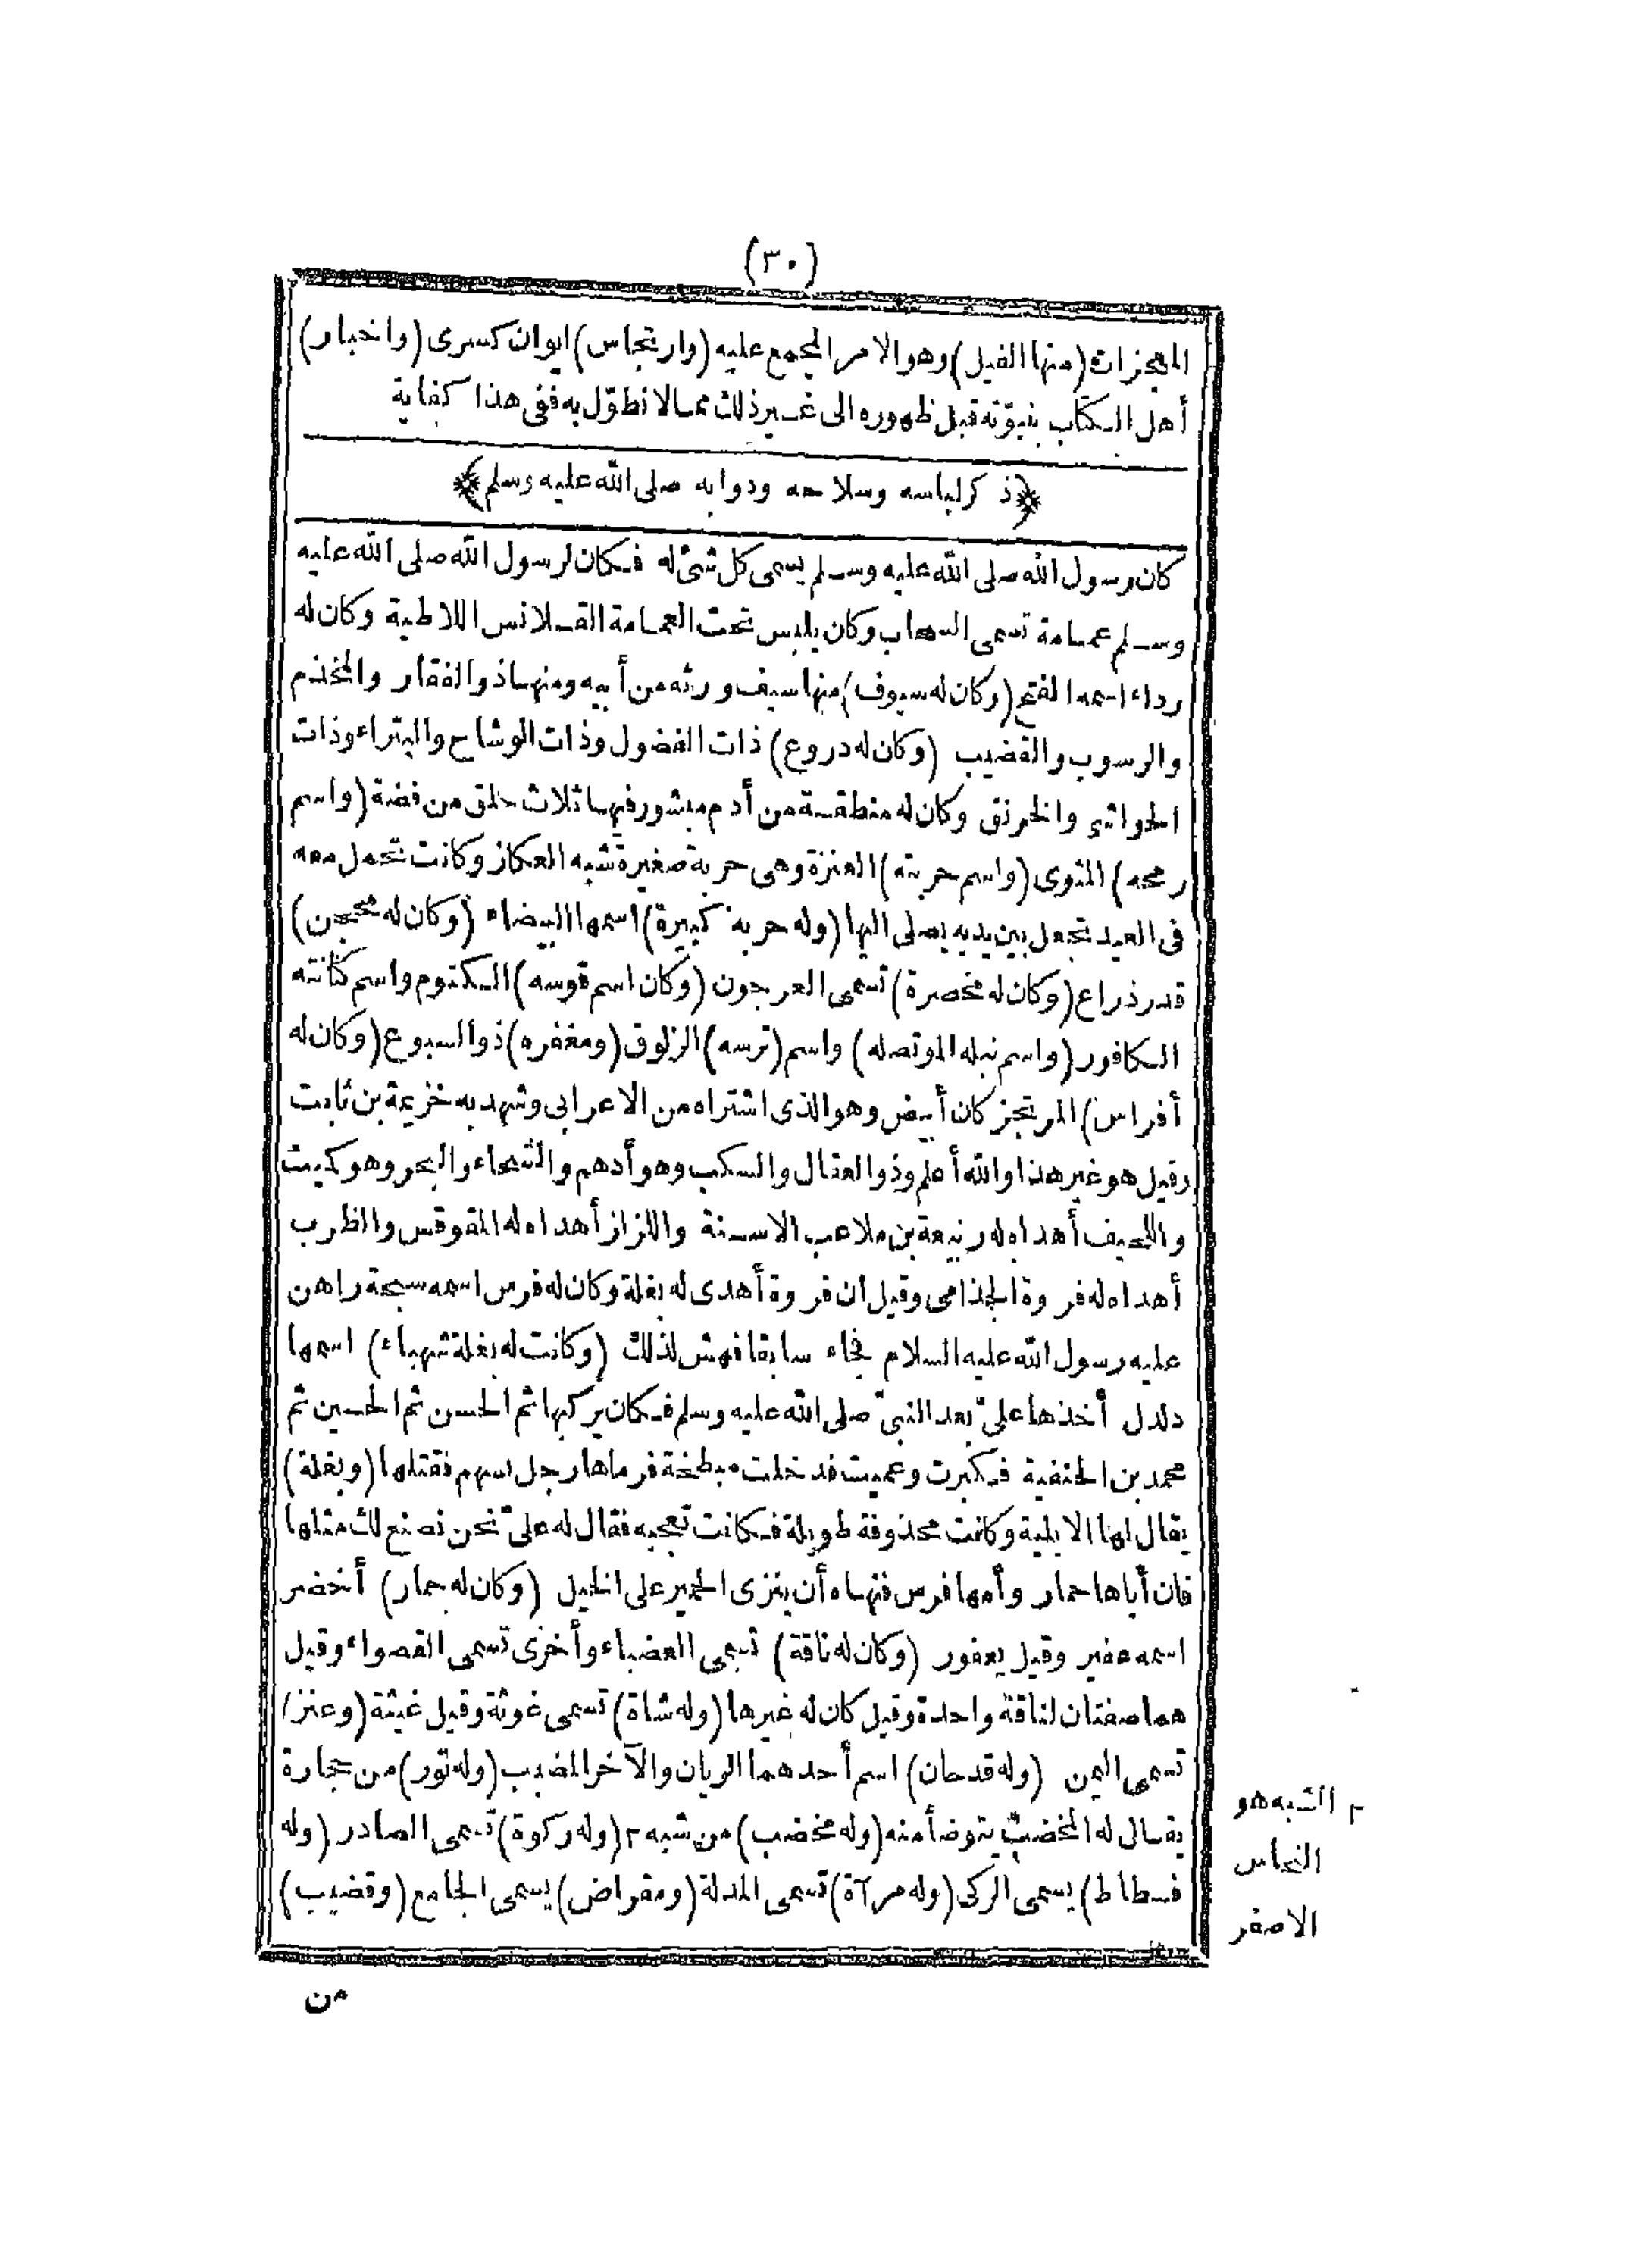 (٣٠)
المعجزات (منها الفيل) وهو الامر المجمع عليه (وارتجاس) ايوان كسرى (واخبار)
أهل الكتاب بنبوّته قبل ظهوره الى غير ذلك مما لا نطوّل به ففي هذا كفاية
﴿ذكر لباسه وسلاحه ودوابه صلى الله عليه وسلم﴾
كان رسول الله صلى الله عليه وسلم يسمى كل شئ له فكان لرسول الله صلى الله عليه
وسلم عمامة تسمى السحاب وكان يلبس تحت العمامة القلانس اللاطية وكان له
رداء اسمه الفتح (وكان له سيوف) منها سيف ورثه من أبيه ومنها ذو الفقار والمخذم
والرسوب والقضيب (وكان له دروع) ذات الفضول وذات الوشاح والبتراء وذات
الحواشى والخرنق وكان له منطقة من أدم مبشور فيها ثلاث حلق من فضة (واسم
رمحه) المثوى (واسم حربته) العنزة وهى حربة صغيرة شبه العكاز وكانت تحمل معه
فى العيد تجعل بين يديه يصلى اليها (وله حربة كبيرة) اسمها البيضاء (وكان له محجن)
قدر ذراع (وكان له مخصرة) تسمى العرجون (وكان اسم قوسه) الكتوم واسم كنانته
الكافور (واسم نبله الموتصله) واسم (ترسه) الزلوق (ومغفره) ذو السبوع (وكان له
أفراس) المرتجز كان أبيض وهو الذى اشتراه من الاعرابى وشهد به خزيمة بن ثابت
وقيل هو غير هذا والله أعلم وذو العقال والسكب وهو أدهم والشحاء والبحر وهو كميت
واللحيف أهداه له ربيعة بن ملاعب الاسنة واللزاز أهداه له المقوقس والظرب
أهداه له فروة الجذامى وقيل ان فروة أهدى له بغلة وكان له فرس اسمه سبحة راهن
عليه رسول الله عليه السلام فجاء سابقا فهش لذلك (وكانت له بغلة شهباء) اسمها
دلدل أخذها علىّ بعد النبىّ صلى الله عليه وسلم فكان يركبها ثم الحسن ثم الحسين ثم
محمد بن الحنفية فكبرت وعميت فدخلت مبطخة فرماها رجل بسهم فقتلها (وبغلة)
يقال لها الايلية وكانت محذوفة طويلة فكانت تعجبه فقال له علىّ نحن نصنع لك مثلها
فان أباها حمار وأمها فرس فنهاه أن ينزى الحمير على الخيل (وكان له حمار) أخضر
اسمه عفير وقيل يعفور (وكان له ناقة) تسمى العضباء وأخرى تسمى القصواء وقيل
هما صفتان لناقة واحدة وقيل كان له غيرها (وله شاة) تسمى غوثة وقيل غيثة (وعنز)
تسمى اليمن (وله قدحان) اسم أحدهما الريان والآخر المضبب (وله تور) من حجارة
يقال له المخضب يتوضأ منه (وله مخضب) من شبه ٢ (وله ركوة) تسمى الصادر (وله
فسطاط) يسمى الركى (وله مرآة) تسمى المدلة (ومقراض) يسمى الجامع (وقضيب)
٢ الشبه هو
النحاس
الاصفر
من